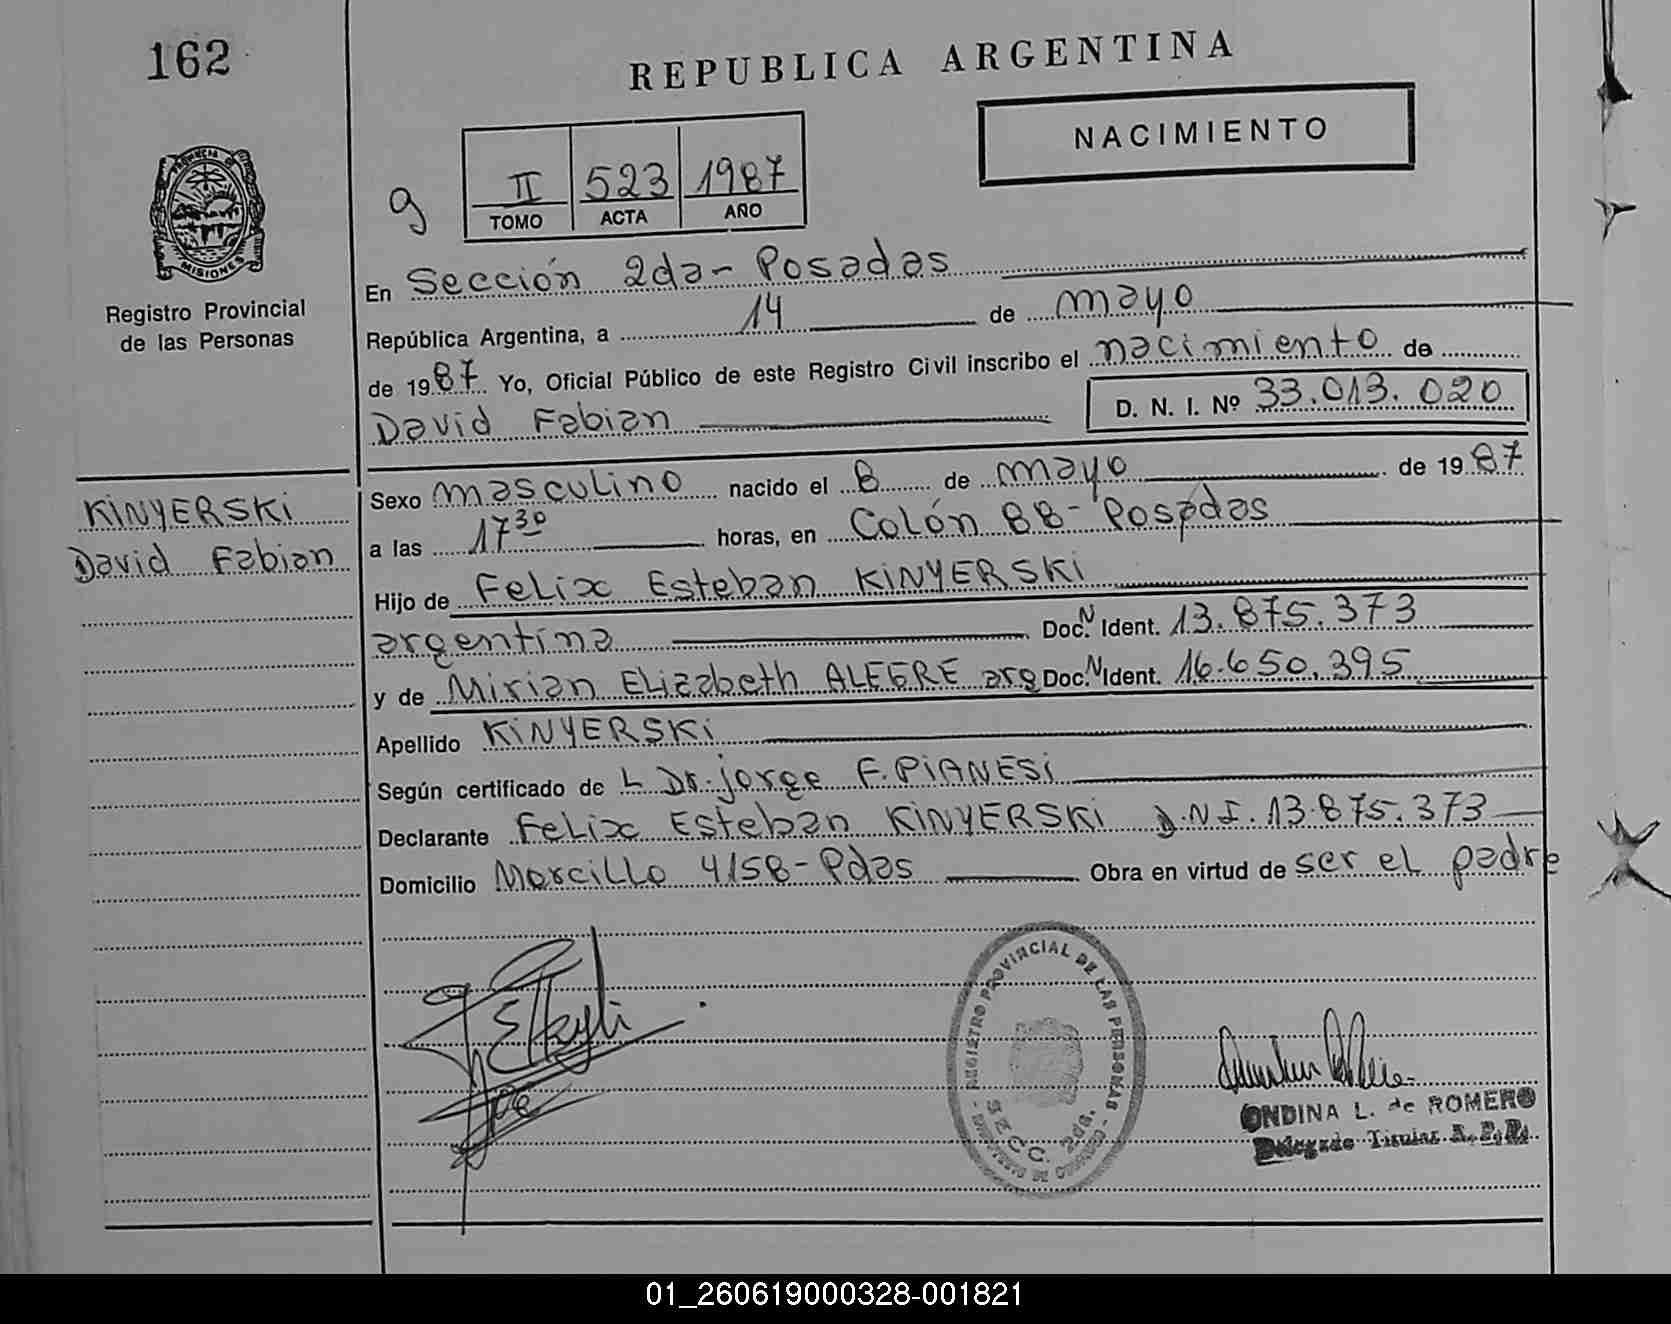 162
REPUBLICA ARGENTINA
NACIMIENTO
PROVINCIA DE
MISIONES
Registro Provincial
de las Personas
g
II 523 1987
TOMO ACTA AÑO
En Sección 2da- Posadas
República Argentina, a 14 de mayo
de 1987 Yo, Oficial Público de este Registro Civil inscribo el nacimiento de
David Fabian D. N. I. Nº 33.013.020
KiNYERSKi
David Fabian
Sexo masculino nacido el 8 de mayo de 1987
a las 17 30 horas, en Colón 88- Posadas
Hijo de Felix Esteban KiNYERSKi
argentina Doc. N Ident. 13.875.373
y de Mirian Elizabeth ALEGRE arg Doc. N Ident. 16.650.395
Apellido KiNYERSKi
Según certificado de L Dr. jorge F. PiANESi
Declarante Felix Esteban KiNYERSKi D.N.I. 13.875.373
Domicilio Morcillo 4158- Pdas Obra en virtud de ser el padre
REGISTRO PROVINCIAL DE LAS PERSONAS
SECC. 2da.
ONDINA L. de ROMERO
Delegado Titular R. P. P.
01_260619000328-001821